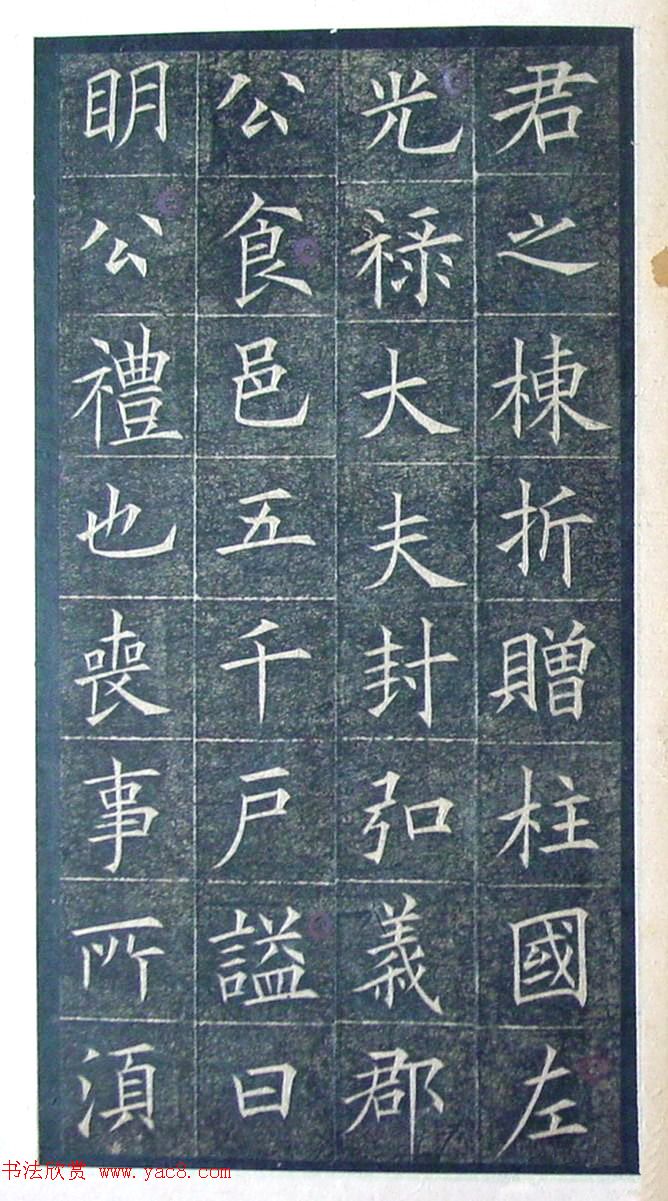 君之棟折贈柱國左
光禄大夫封弘義郡
公食邑五千户謚曰
眀公禮也喪事所須
书法欣赏 www.yac8.com